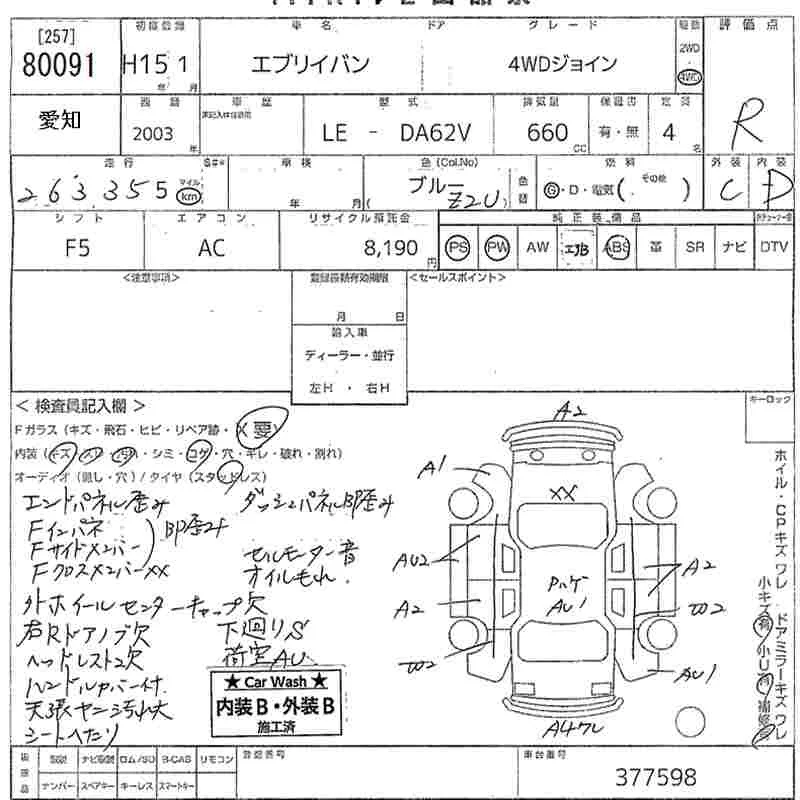 [257]
80091
初度登録
H15 1
年 月
車名
ドア
グレード
エブリイバン
4WDジョイン
駆動
2WD
4WD
評価点
R
愛知
2003
年
車歴
型式
LE - DA62V
排気量
660
CC
保証書
有・無
定員
4
名
走行
263,355
マイル
km
車検
年 月
色(Col.No)
ブルー
Z2U
色替
燃料
G・D・電気( その他 )
外装
C
内装
D
シフト
F5
エアコン
AC
リサイクル預託金
8,190
円
純正装備品
PS PW AW エアB ABS 革 SR ナビ DTV
<注意事項>
登録書類有効期限
月 日
輸入車
ディーラー・並行
左H ・ 右H
<セールスポイント>
<検査員記入欄>
キーロック
Fガラス(キズ・飛石・ヒビ・リペア跡・X要)
内装(キズ・スレ・汚れ・シミ・コゲ・穴・キレ・破れ・割れ)
オーディオ(無し・穴)/タイヤ(スタッドレス)
エンドパネル歪み
ダッシュパネルBP歪み
Fインパネ
Fサイドメンバー
BP歪み
FクロスメンバーXX
セルモーター音
オイルもれ.
外ホイールセンターキャップ欠
右Rドアノブ欠
下廻りS
ヘッドレスト2欠
荷室AU
ハンドルカバー付.
天張ヤニ汚れ大
シートへたり
★ Car Wash ★
内装B・外装B
施工済
A2
A1
XX
AU2
A2
Pハゲ
AU1
A2
W2
W2
AU1
A4ワレ
ホイール・CPキズワレ
ドアミラーキズワレ
小キズ有
小U有
補修
ナビ取説
ロム/SD
B-CAS
リモコン
ナンバー
スペアキー
キーレス
スマートキー
登録番号
車台番号
377598